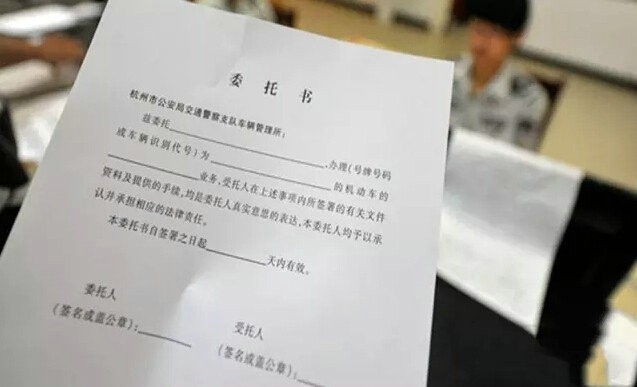 委托书
杭州市公安局交通警察支队车辆管理所：
兹委托____________________，办理（号牌号码
或车辆识别代号）为____________________的机动车的
____________________业务，受托人在上述事项内所签署的有关文件
资料及提供的手续，均是委托人真实意思的表达，本委托人均予以承
认并承担相应的法律责任。
本委托书自签署之日起__________天内有效。
委托人
（签名或盖公章）：________
受托人
（签名或盖公章）：________